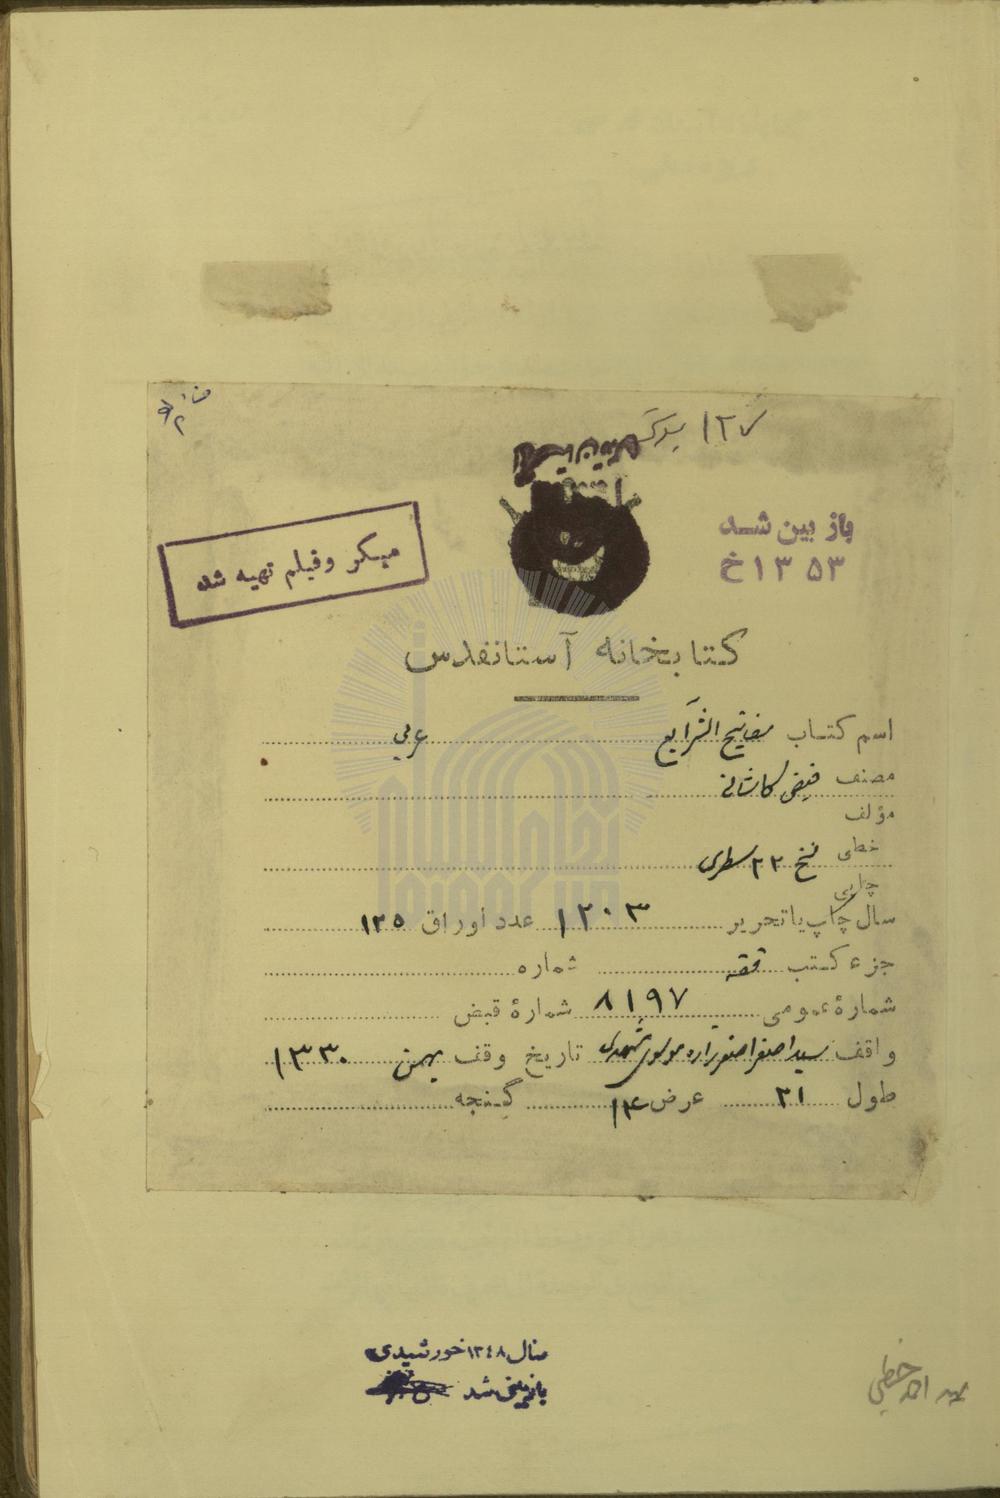 ۱۲۷
باز بین شد
۱۳۵۳ خ
میکروفیلم تهیه شد
کتابخانه آستانقدس
اسم کتاب مفاتیح الشرایع عربی
مصنف فیض کاشانی
مؤلف
خطی نسخ ۲۲ سطری
چاپی
سال چاپ یا تحریر ۱۲۰۳ عدد اوراق ۱۲۵
جزء کتب فقه شماره
شمارهٔ عمومی ۸۱۹۷ شمارهٔ قبض
واقف سید اصغر اصغرزاده موسوی مشهدی تاریخ وقف بهمن ۱۳۳۰
طول ۲۱ عرض ۱۴ گنجه
سال ۱۳٤۸ خورشیدی
بازبینی شد